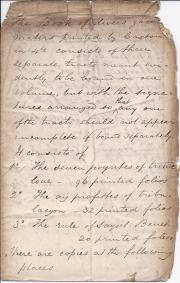 The Book of divers ghostly
matters printed by Caxton
in 4to consists of three
separate tracts meant evi-
dently to be bound in one
volume, but with the signa-
tures arranged so that any one
of the tracts should not appear
incomplete if bound separately
It consists of
1o The seven poyntes of trewe
love - 96 printed folios
2o The
32 printed folios
3o The rule of Saynt Benet
20 printed folios
There are copies at the following
places